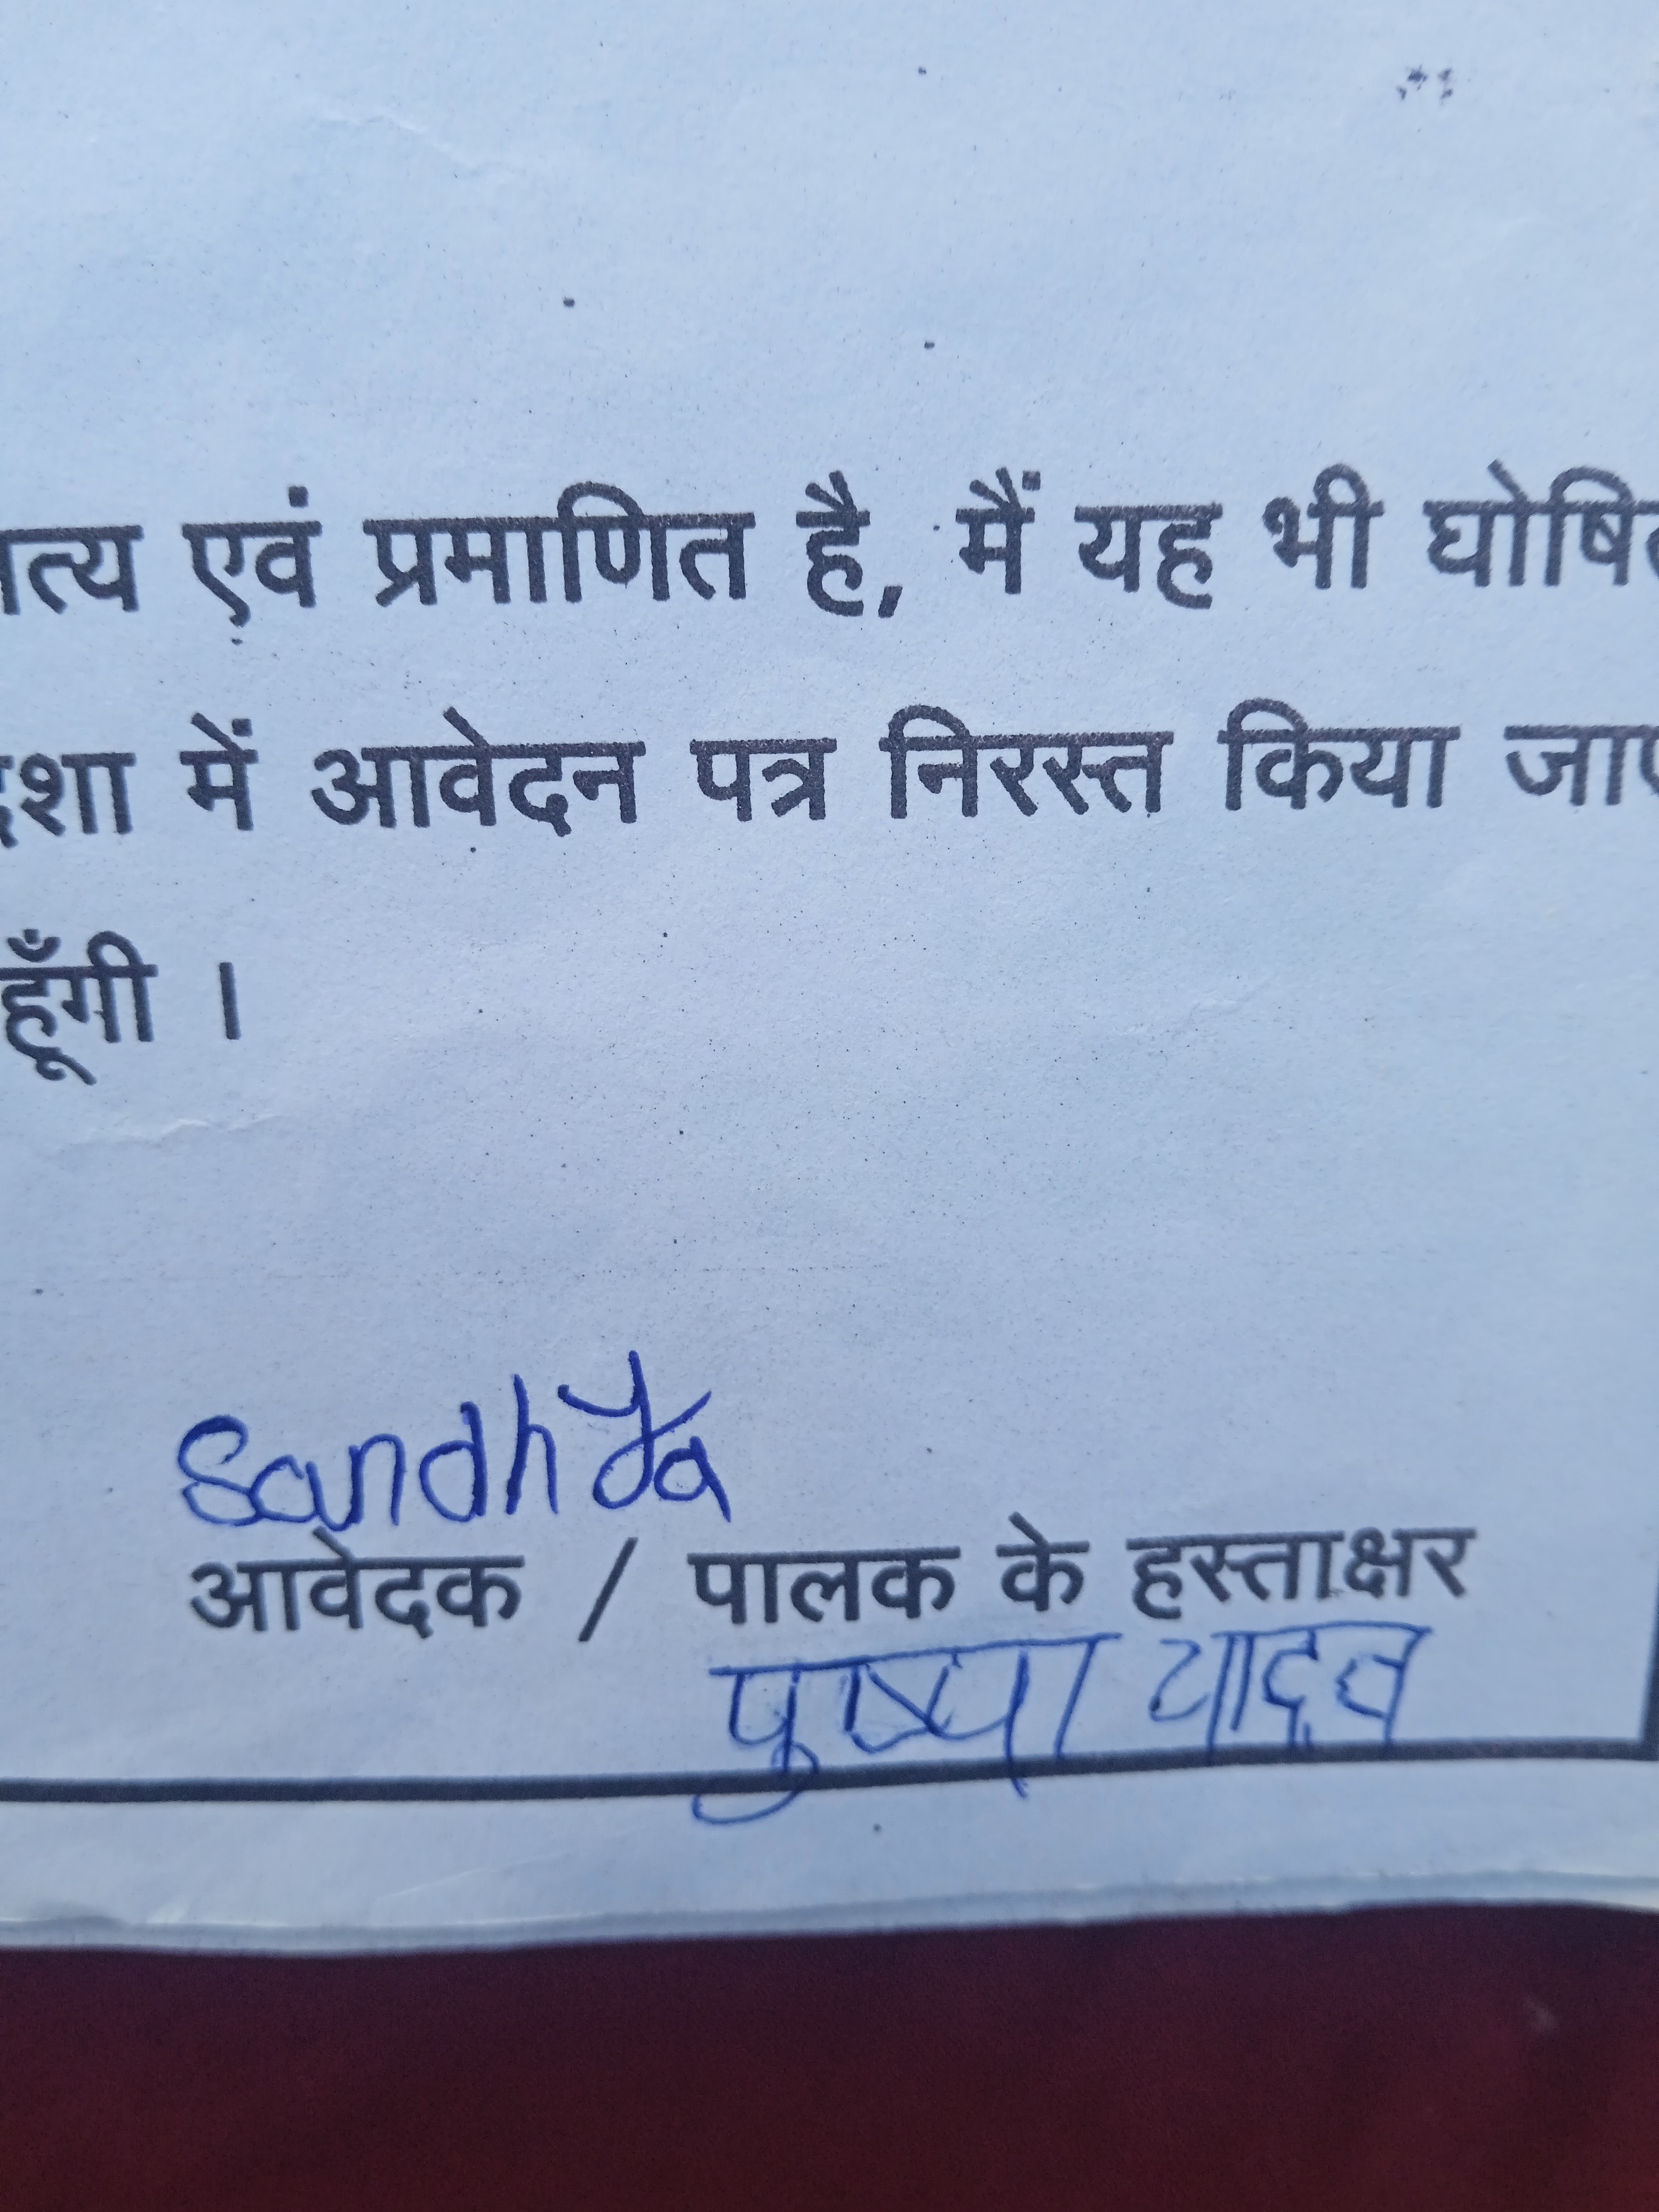 एवं प्रमाणित है, मैं यह भी
में आवेदन पत्र निरस्त किया
हूँगी ।
Sandhya
आवेदक / पालक के हस्ताक्षर
पुष्पा यादव